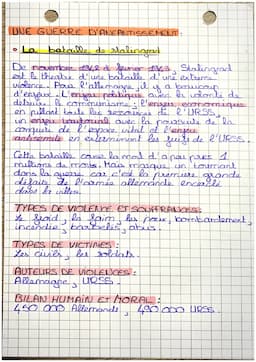 UNE GUERRE D'ANEANTISSEMENT :
• La bataille de Stalingrad
De novembre 1942 à février 1943, Stalingrad
est le théâtre d'une bataille d'une extrême
violence. Pour l'allemagne, il y a beaucoup
d'enjeux. L'enjeu politique avec la volonté de
détruire le communisme ; l'enjeu économique
en pillant toute les ressources de l'URSS,
un enjeu avec la poursuite de la
conquête de l'espace vital et l'enjeu
antisémite en exterminant les juifs de l'URSS.
Cette bataille cause la mort d'à peu près 1
millions de morts. Mais marque un tournant
dans la guerre car c'est la première grande
défaite de l'armée allemande encerclée
dans la ville.
TYPES DE VIOLENCE ET SOUFFRANCES :
Le froid, la faim, les poux, bombardement,
incendie, barbelés, obus.
TYPES DE VICTIMES :
Les civils, les soldats.
AUTEURS DE VIOLENCES :
Allemagne, URSS.
BILAN HUMAIN ET MORAL :
450 000 Allemands, 490 000 URSS.